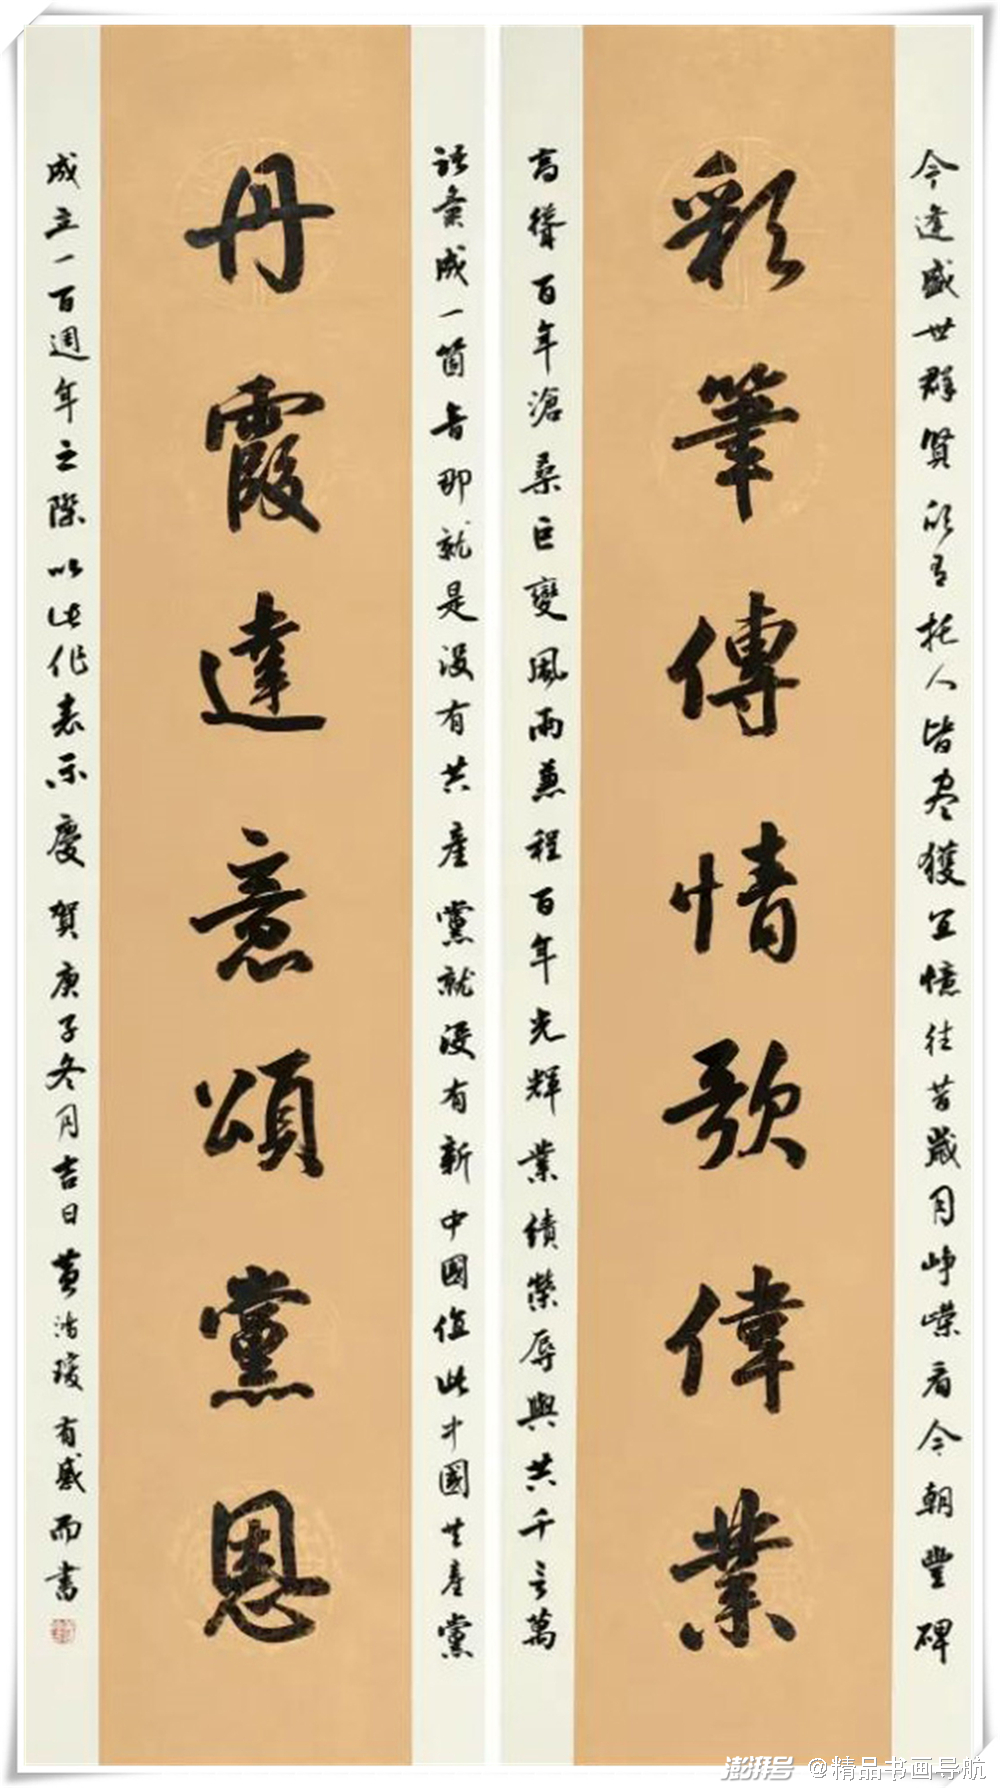 今逢盛世群賢欣有托人皆尽獲宜憶往昔歲月崢嶸看今朝豐碑
彩筆傳情歌偉業
高聳百年滄桑巨變風雨兼程百年光輝業績榮辱與共千言萬
語彙成一箇音那就是沒有共產黨就沒有新中國值此中國共產黨
丹霞達意頌黨恩
成立一百週年之際以此作表示慶賀庚子冬月吉日黄有感而書
澎湃号 @精品书画导航